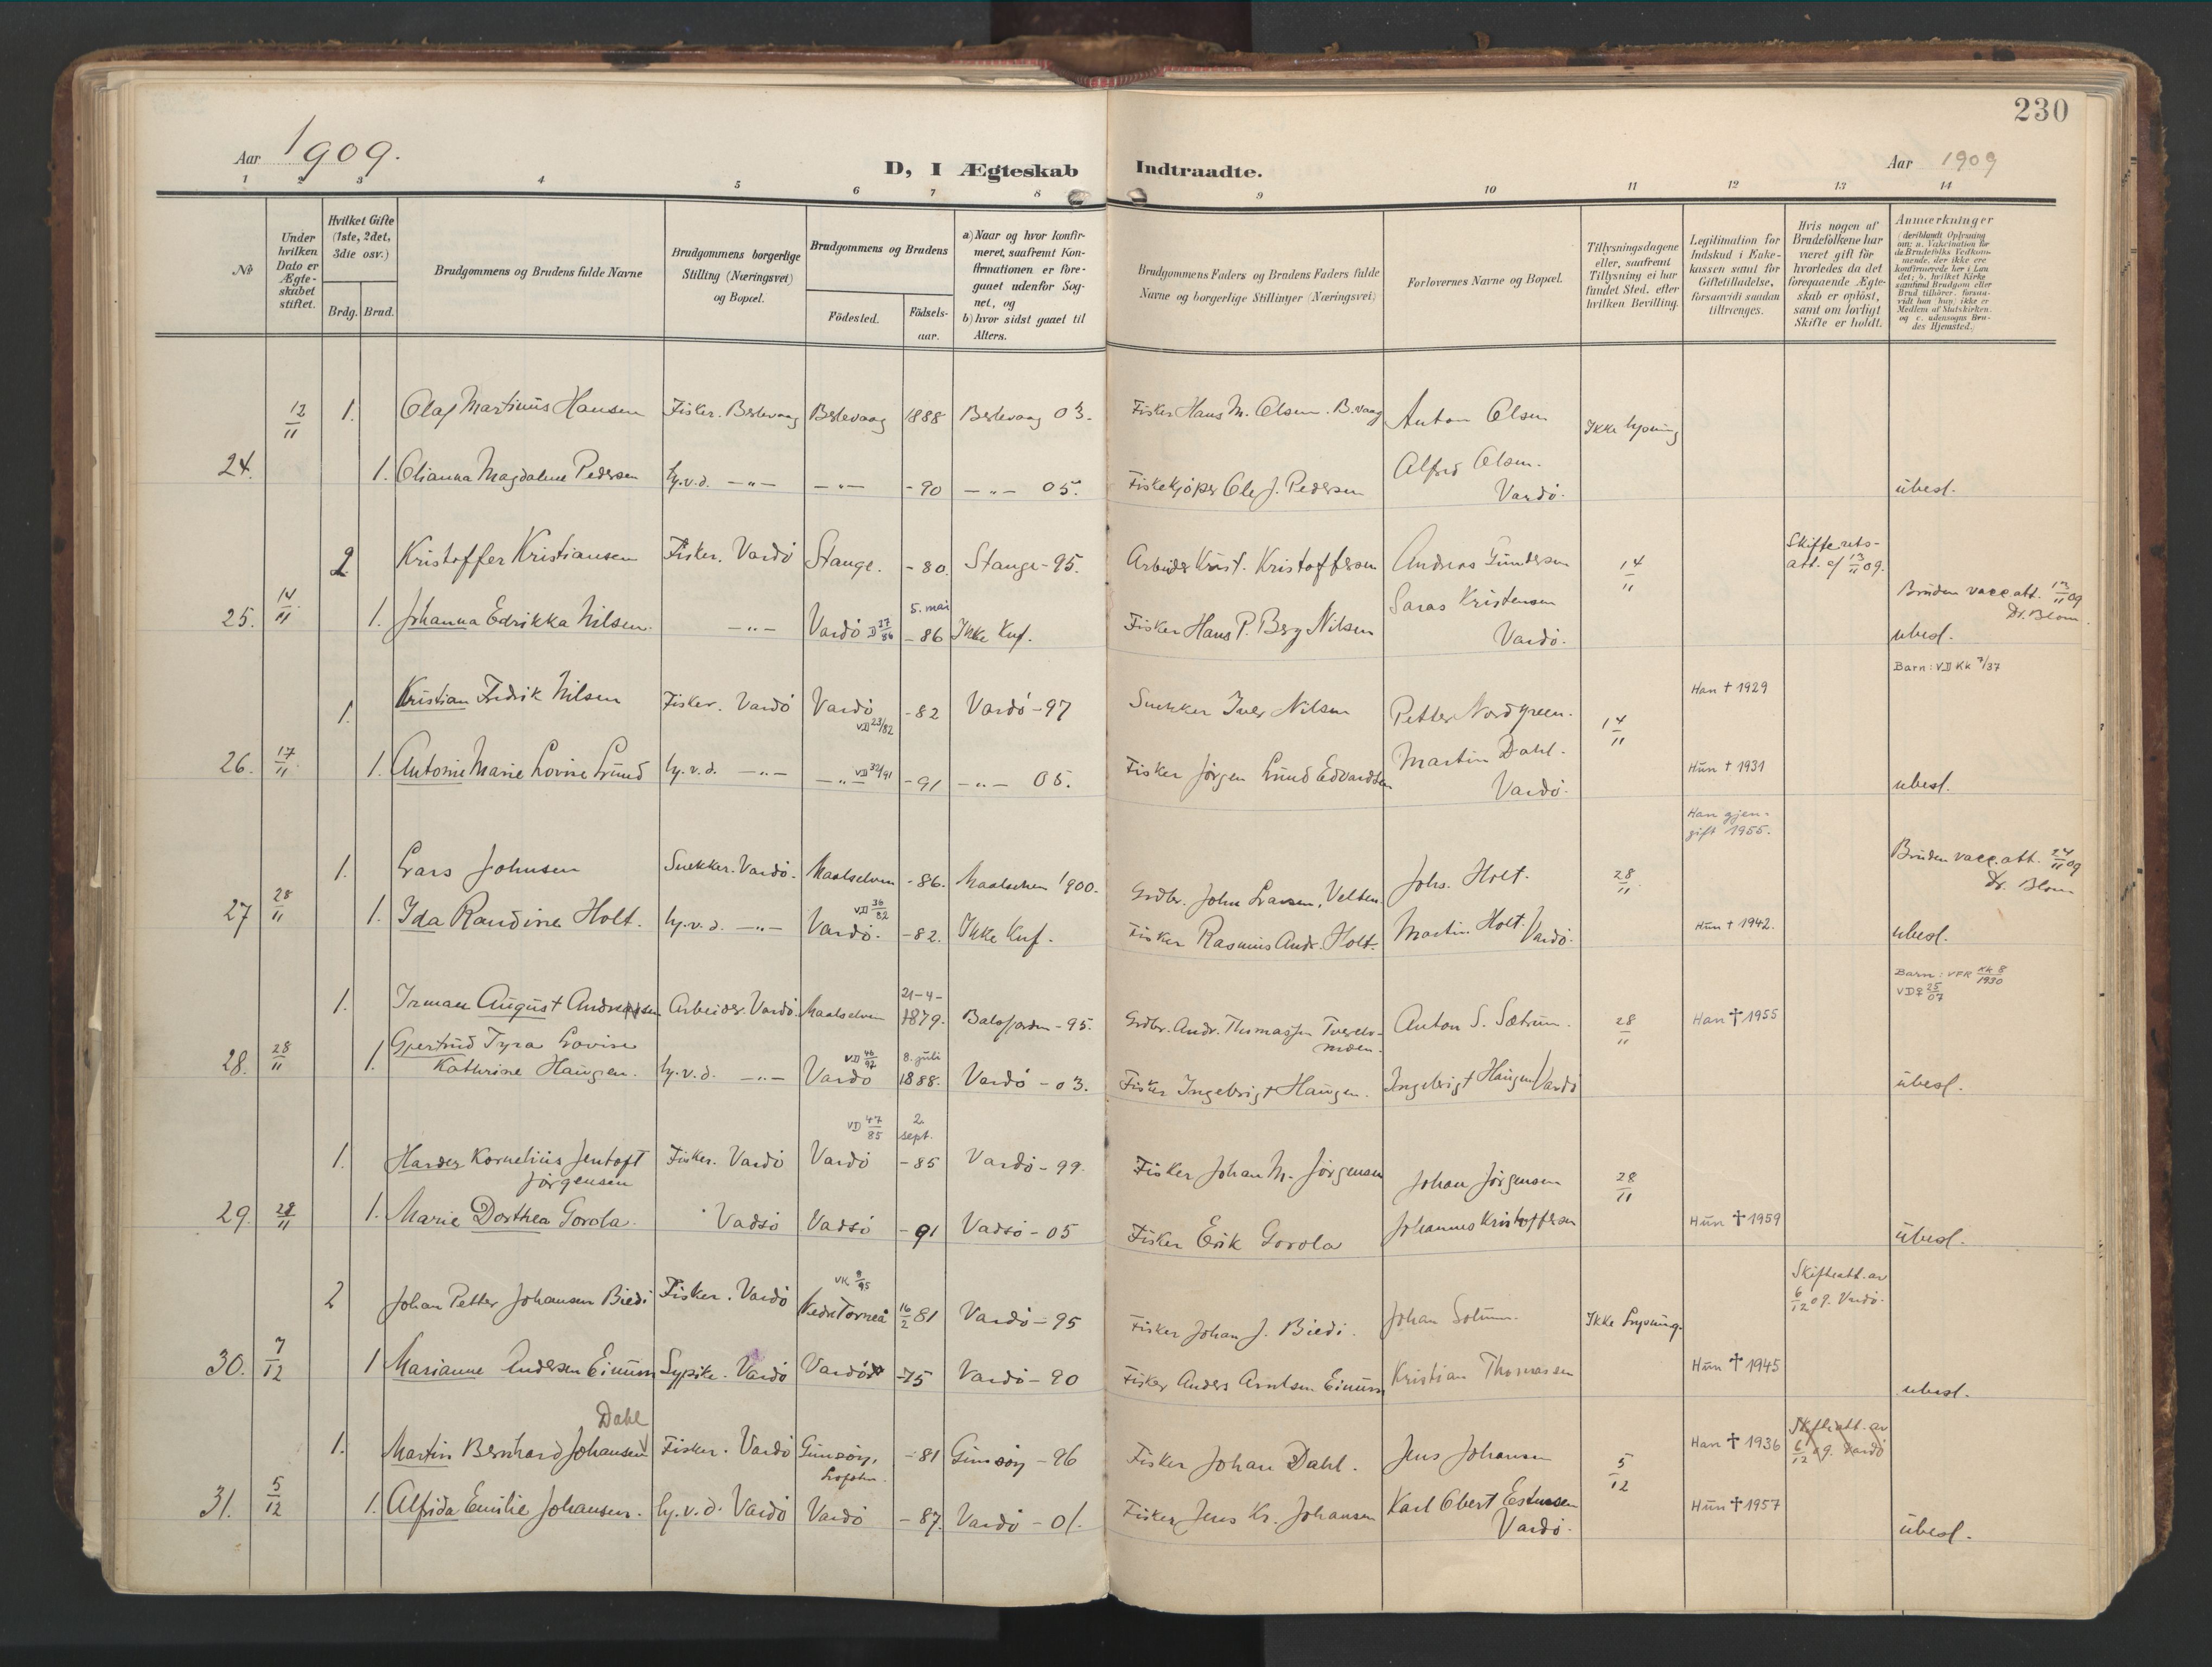 230
Aar 1909.
D, I Ægteskab Indtraadte.
Aar 1909
1 2 3 4 5 6 7 8 9 10 11 12 13 14
No
Under hvilken Dato er Ægteskabet stiftet.
Hvilket Gifte (1ste, 2det, 3die osv.)
Brdg. Brud.
Brudgommens og Brudens fulde Navne
Brudgommens borgerlige Stilling (Næringsvei) og Bopæl.
Brudgommens og Brudens
Fødested.
Fødselsaar.
a) Naar og hvor konfirmeret, saafremt Konfirmationen er foregaaet udenfor Sognet, og
b) hvor sidst gaaet til Alters.
Brudgommens Faders og Brudens Faders fulde Navne og borgerlige Stillinger (Næringsvei)
Forlovernes Navne og Bopæl.
Tillysningsdagene eller, saafremt Tillysning ei har fundet Sted, efter hvilken Bevilling.
Legitimation for Indskud i Enkekassen samt for Giftetilladelse, forsaavidt saadan tiltrænges.
Hvis nogen af Brudefolkene har været gift før hvorledes da det foregaaende Ægteskab er opløst, samt om lovligt Skifte er holdt.
Anmærkninger (deriblandt Oplysning om: a. Vakcination for de Brudefolks Vedkommende, der ikke ere konfirmerede her i Landet; b. hvilket Kirkesamfund Brudgom eller Brud tilhører, forsaavidt han (hun) ikke er Medlem af Statskirken, og c. udensogns Brudes Hjemsted.)
12/11 1. Olaf Martinus Hansen Fisker. Berlevaag Berlevaag 1888 Berlevaag 03. Fisker Hans M. Olsen. B.vaag Anton Olsen Ikke lysning
24. 1. Olianna Magdalene Pedersen hj.v.d. —"— —"— -90 —"— 05. Fiskekjøper Ole J. Pedersen Alfred Olsen. Vardø. ubesl.
2 Kristoffer Kristiansen Fisker. Vardø Stange. -80. Stange-95. Arbeider Krist. Kristoffersen Andreas Gundersen 14/11 Skifterets-att. af 13/11 09.
25. 14/11. 1. Johanna Edrikka Nilsen. —"— Vardø D 27/86 5. mai -86 Ikke Knf. Fisker Hans P. Berg Nilsen Saras Kristensen Vardø. Bruden vacc.att. 12/11 09 Dr. Blom. ubesl.
1. Kristian Fredrik Nilsen Fisker. Vardø Vardø VD 23/82 -82 Vardø-97 Snekker Iver Nilsen Petter Nordgreen. 14/11 Han † 1929 Barn: VD Kk 7/37
26. 17/11. 1. Antonie Marie Lovise Lund hj.v.d. —"— —"— VD 32/91 -91 —"— 05. Fisker Jørgen Lund Edvardsen Martin Dahl. Vardø. Hun † 1931 ubesl.
1. Lars Johnsen Snekker. Vardø. Maalselven -86. Maalselven 1900. Grdbr. John Larsen, Velten. Johs. Holt. 28/11. Han gjengift 1955. Bruden vacc.att. 24/11 09 Dr. Blom
27 28/11 1. Ida Randine Holt. hj.v.d. —"— Vardø. VD 36/82 -82. Ikke Knf. Fisker Rasmus Andr. Holt. Martin Holt. Vardø. Hun † 1942. ubesl.
1. Irman August Andreassen Arbeider. Vardø. Maalselven 21-4-1879. Balsfjorden-95. Grdbr. Andr. Thomassen Anton S. Sætrum. 28/11 Han † 1955 Barn: VFR KK 8/1930 VD♀ 25/07
28. 28/11 1. Gjertrud Tyra Lovise Kathrine Haugen. hj.v.d. —"— VD 46/97 Vardø 8. juli 1888. Vardø-03. Fisker Ingebrigt Haugen. Ingebrigt Haugen Vardø ubesl.
1. Harder Kornelius Jentoft Jørgensen Fisker. Vardø VD 47/85 Vardø 2. sept. -85 Vardø-99. Fisker Johan M. Jørgensen Johan Jørgensen 28/11
29. 28/11 1. Marie Dorthea Gorola. Vadsø Vadsø -91 Vadsø-05 Fisker Erik Gorola Johannes Kristoffersen Hun † 1959 ubesl.
2 Johan Petter Johansen Biedi Fisker. Vardø VK 9/95 Nedre Torneå 16/2 81 Vardø-95 Fisker Johan J. Biedi. Johan Solum. Ikke Lysning. Skifteatt. av 6/12 09. Vardø.
30. 7/12 1 Marianne Andersen Einum Sypike. Vardø Vardø -75 Vardø-90 Fisker Anders Arntsen Einum Kristian Thomassen Hun † 1945 ubesl.
1. Martin Bernhard Johansen Dahl Fisker. Vardø Gimsøy, Lofoten. -81 Gimsøy-96 Fisker Johan Dahl. Jens Johansen 5/12 Han † 1936 Skifteatt. av 6/12 09. Vardø
31. 5/12 1. Alfida Emilie Johansen. hj.v.d. Vardø Vardø -87. Vardø-01. Fisker Jens Kr. Johansen Karl Obert Vardø. Hun † 1957 ubesl.